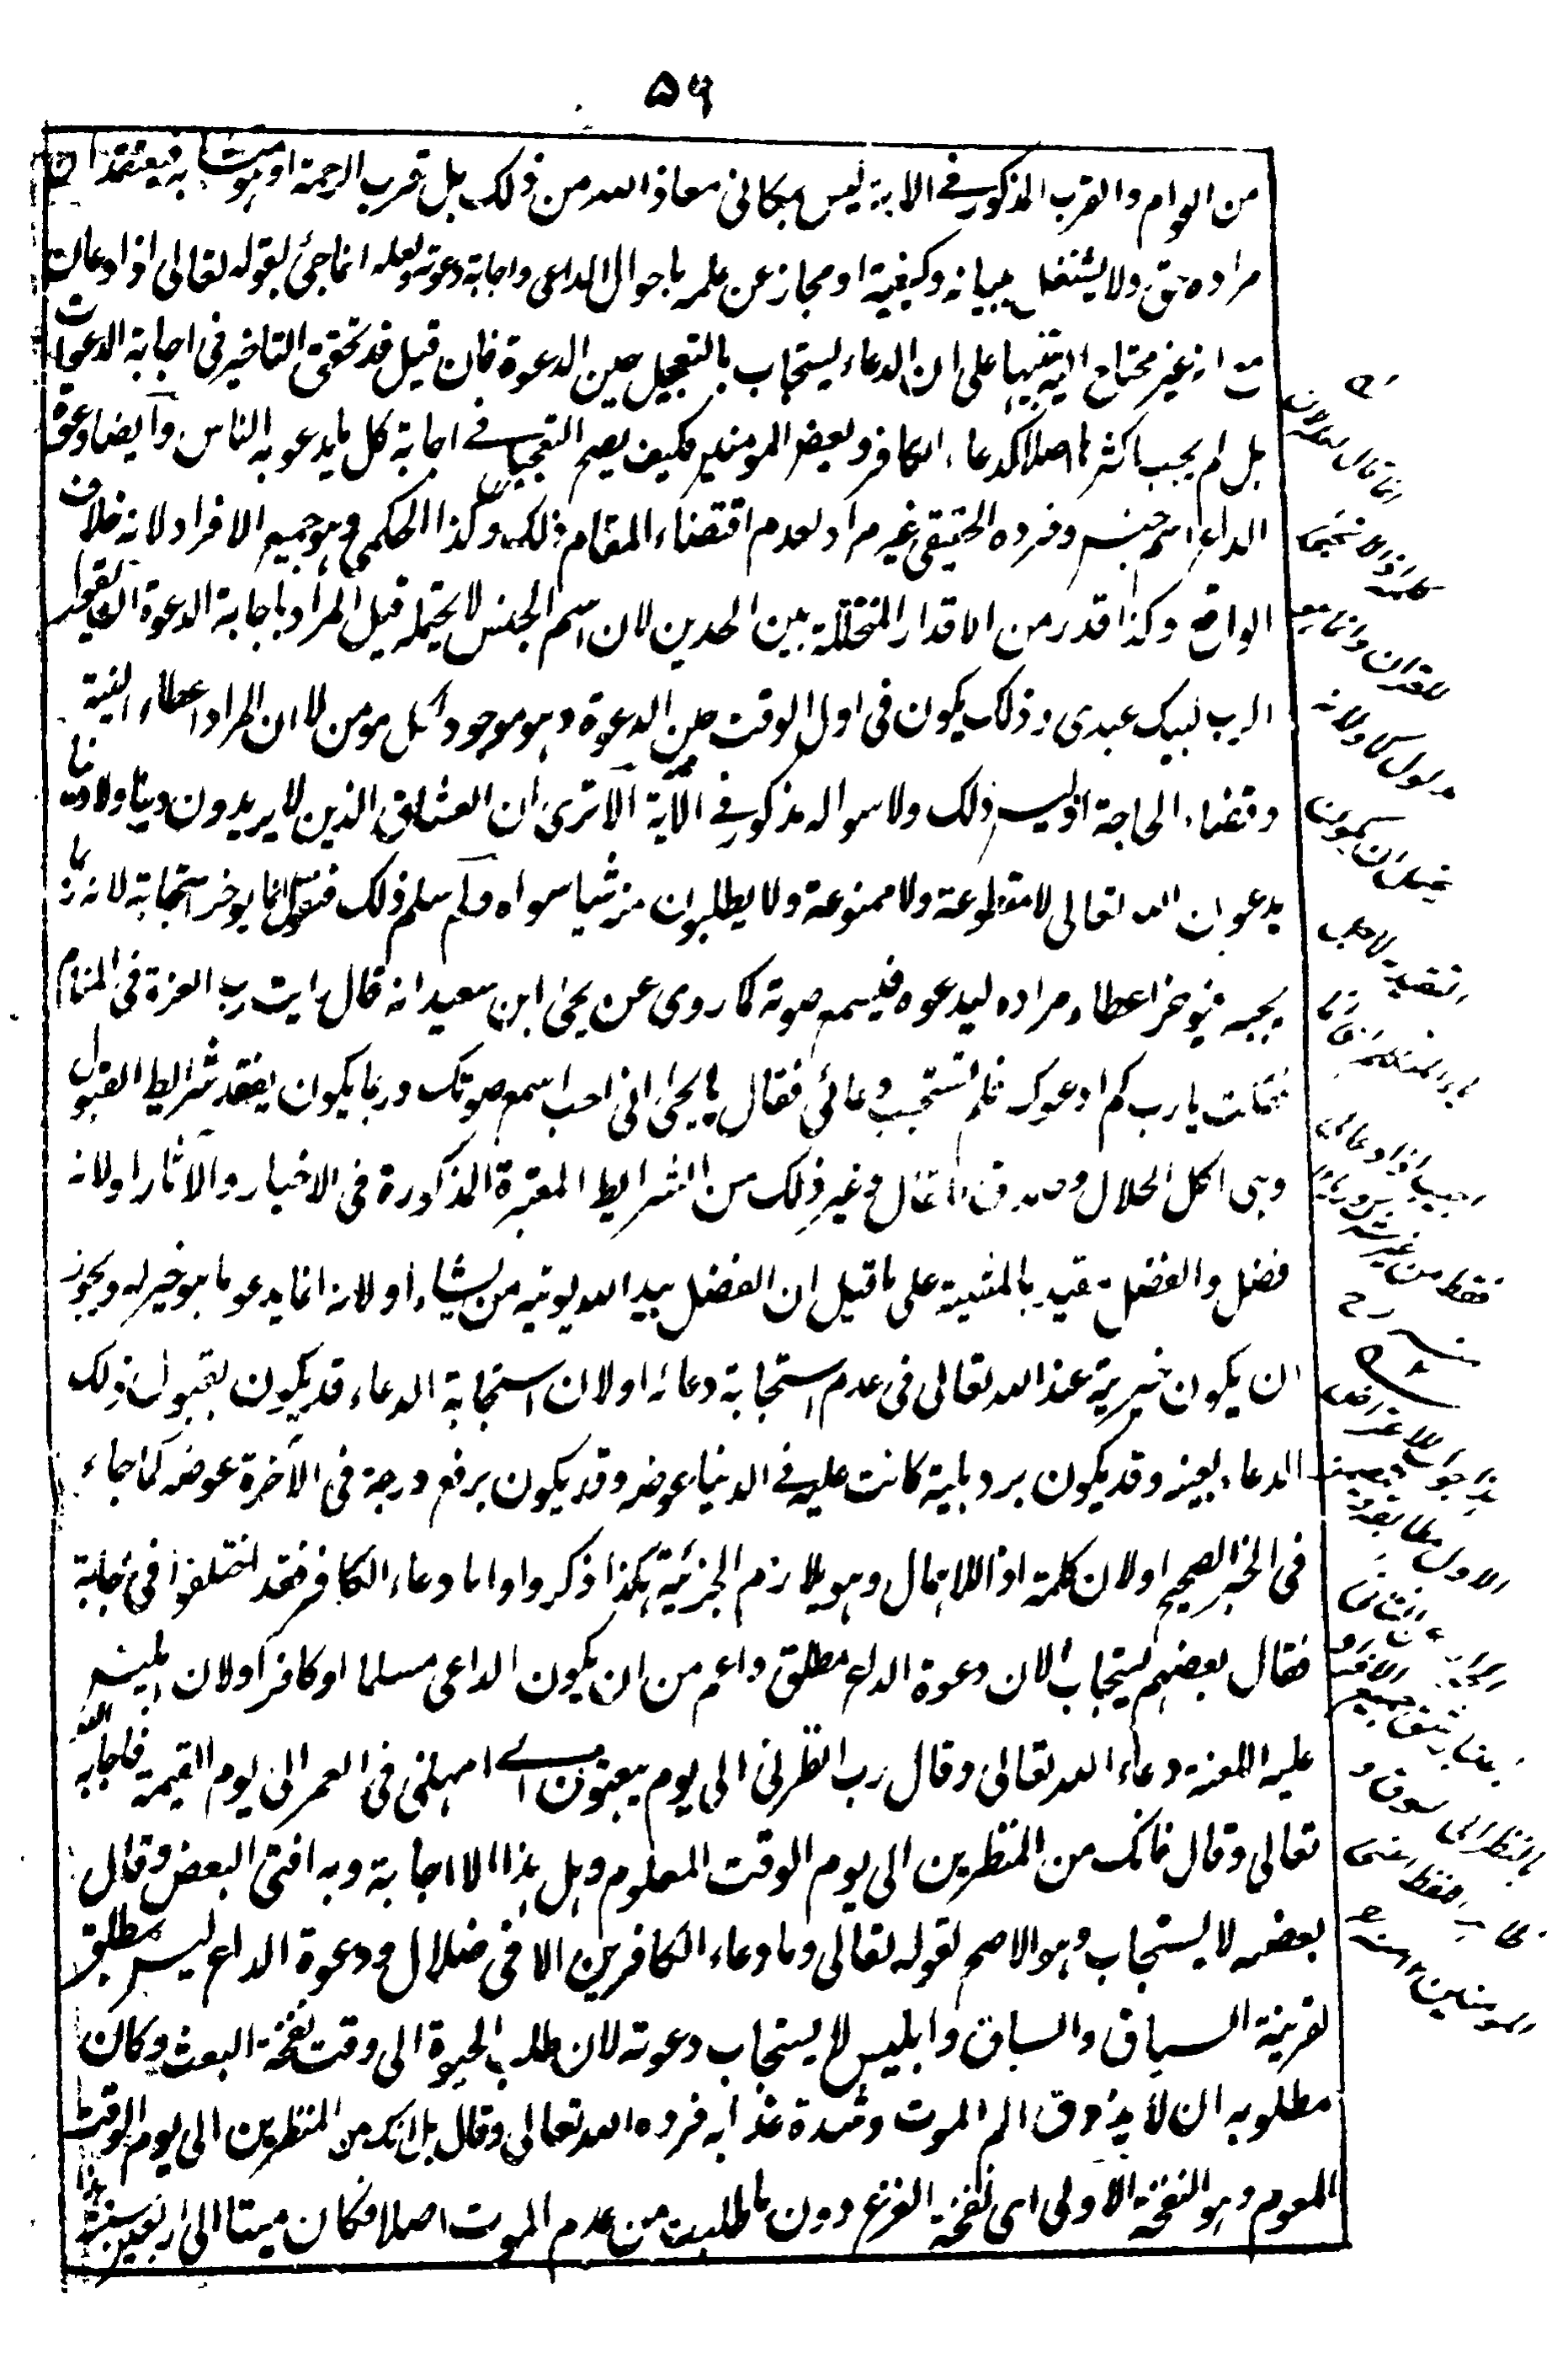 ۵۶
من الهوام والقرب المذكور في الاية ليس بمكاني معاذ الله من ذلك بل قرب الرحمة او هو متشابه فيعتقد ان
مراده حق ولا يشتغل ببيانه وكيفية او مجاز عن علمه باحوال الداعي واجابة دعوته ولعله انما جئ بقوله تعالى اذا دعان
مع انه غير محتاج اليه تنبيها على ان الدعاء ليستجاب بالتعجيل حين الدعوة فان قيل قد تحقق التاخير في اجابة الدعوات
بل لم يجب اكثرها اصلا كدعاء الكافر وبعض المومنين فكيف يصح التعجيل في اجابة كل ما يدعو به الناس وايضا دعوة
الداع اسم جنس وفرده الحقيقي غير مراد لعدم اقتضاء المقام ذلك وكذا الحكمي وهو جميع الافراد لانه خلاف
الواقع وكذا قدر من الاقدار المتخللة بين الحدين لان اسم الجنس لا يحتمله قيل المراد باجابة الدعوة ان يقول
الرب لبيك عبدي وذلك يكون في اول الوقت حين الدعوة وهو موجود لكل مومن لا ان المراد اعطاء المنية
وقضاء الحاجة اذ ليس ذلك ولا سواله مذكور في الآية الا ترى ان العشاق الذين لا يريدون دينا ولا دنيا
يدعون الله تعالى لا مقطوعة ولا ممنوعة ولا يطلبون منه شيا سواه ولم سلم ذلك فنقول انما يوخر استجابة لانه ربما
يحبه فيوخر اعطاء مراده ليدعوه فيسمع صوته كما روى عن يحيى ابن سعيد انه قال رايت رب العزة في المنام
فقلت يا رب كم ادعوك فلم تستجب دعائي فقال يا يحيى اني احب اسمع صوتك وربما يكون يفقد شرايط القبول
وهي اكل الحلال وصدق المقال وغير ذلك من الشرايط المعتبرة المذكورة في الاخبار والآثار اولانه
فضل والفضل مقيد بالمشية على ما قيل ان الفضل بيد الله يوتيه من يشاء او لانه انما يدعو ما هو خير له ويجوز
ان يكون خيرية عند الله تعالى في عدم استجابة دعائه اولان استجابة الدعاء قد يكون بقبول ذلك
الدعاء بعينه وقد يكون برد بلية كانت عليه في الدنيا عوضه وقد يكون برفع درجة في الآخرة عوضه كما جاء
في الخبر الصحيح اولان كلمة اذا للاهمال وهو يلازم الجزئية هكذا ذكروا واما دعاء الكافر فقد اختلفوا في اجابة
فقال بعضهم يستجاب لان دعوة الداع مطلق واعم من ان يكون الداعي مسلما او كافرا ولان ابليس
عليه اللعنة دعاء الله تعالى وقال رب انظرني الى يوم يبعثون اے امهلني في العمر الى يوم القيمة فاجابه الله
تعالى وقال فانك من المنظرين الى يوم الوقت المعلوم وهل هذا الا اجابة وبه افتى البعض وقال
بعضهم لا يستجاب وهو الاصح لقوله تعالى وما دعاء الكافرين الا في ضلال ودعوة الداع ليس بمطلق
لقرينة السياق والسباق وابليس لم يستجاب دعوته لان طلب الحيوة الى وقت نفخة البعث وكان
مطلوبه ان لا يذوق الم الموت وشدة عذابه فرده الله تعالى وقال بل انك من المنظرين الى يوم الوقت
المعلوم وهو النفخة الاولى اى نفخة الفزع دون ما طلبت من عدم الموت اصلا فكان ميتا الى اربعين سنة